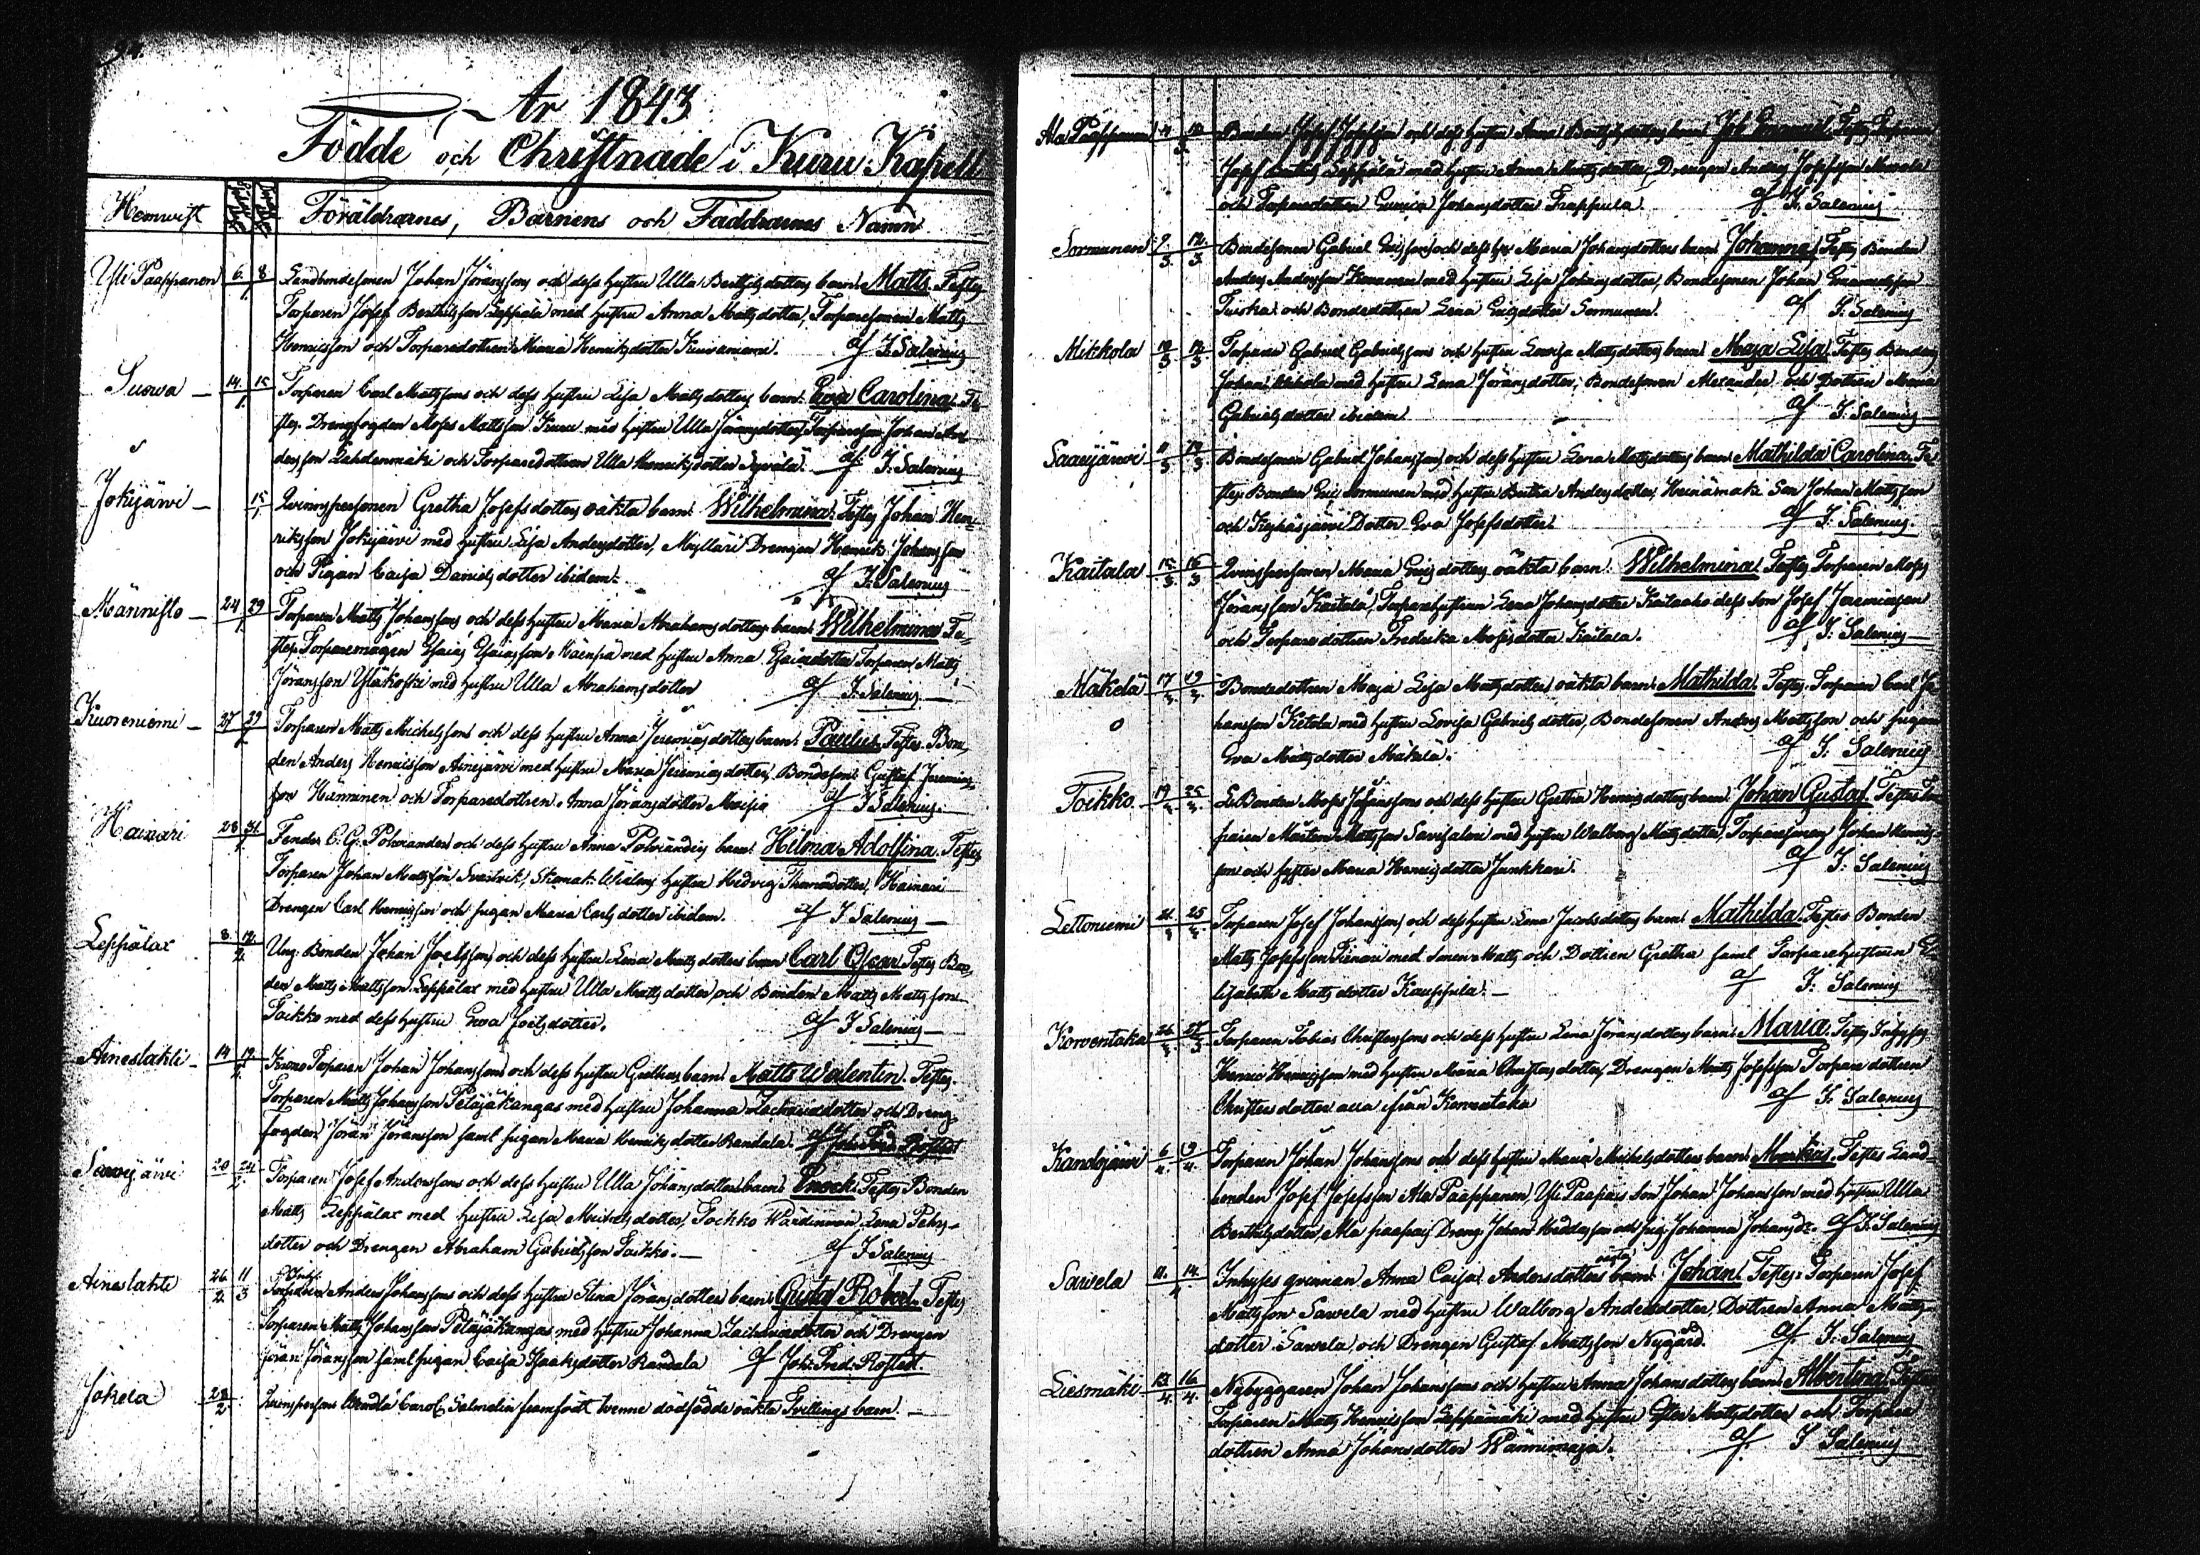 År 1843
Födde och Christnade i Kuru Kapell
Hemvist Föräldrarnes, Barnens och Faddrarnes Namn
Yli Paappanen 6. 8/1 Landbondesonen Johan Jöranssons och dess hustru Ulla Berthilsdotters barn Matts. Testes
Torparen Josef Berthilsson Leppälä med hustru Anna Matsdotter, Torparesonen Matts
Henricsson och Torparedottren Maria Henriksdotter Kuivaniemi. af J. Salenius
Suova 14. 15/1. Torparen Carl Mattssons och dess hustru Lisa Mattsdotters barn: Eva Carolina. Te-
stes. Drengfogden Moses Mattsson Kuru med hustru Ulla Jöransdotter, Torparesonen Johan An-
dersson Lahdenmäki och Torparedottren Ulla Henriksdotter Syvälä. af J. Salenius
Jokijärvi 15/1 Qvinnspersonen Gretha Josefsdotters oäkta barn: Wilhelmina. Testes Johan Hen-
riksson Jokijärvi med hustru Lisa Andersdotter, Mylläri Drengen Henrik Johansson
och Pigan Caisa Danielsdotter ibidem. af J. Salenius
Männistö 24 29/1. Torparen Matts Johanssons och dess hustru Maria Abrahamsdotters barn: Wilhelmina Te-
stes. Torparemågen Esaias Esaiasson med hustru Anna Esaiedotter Torparen Matts
Jöransson Yläkoski med hustru Ulla Abrahamsdotter af J. Salenius
Kuoreniemi 27 29/1 Torparen Matts Michelssons och dess hustru Anna Jeremiasdotters barn: Paulus. Testes. Bon-
den Anders Henricsson med hustru Maria Jeremiasdotter, Bondesonen Gustaf Jeremias-
son Hänninen och Torparedottren Anna Jöransdotter af J Salenius.
Hainari 28 31. C. G. Polviander och dess hustru Anna Polviander barn: Hilma Adolfina. Testes
Torparen Johan Mattsson hustru Hedvig Thomasdotter, Hainari
Drengen Carl Henricsson och pigan Maria Carlsdotter ibidem. af J Salenius
Leppälax 8. 12/2. Ung. Bonden Johan Joelsson och dess hustru Lena Mattsdotters barn Carl Oscar Testes Bon-
den Matts Mattsson Leppälax med hustru Ulla Mattsdotter, och Bonden Matts Mattsson
Toikko med dess hustru Eva Joelsdotter. af J Salenius
Aineslahti 14 19/2. Torparen Johan Johanssons och dess hustru barn: Matts Walentin. Testes.
Torparen Matts Johansson Petäjäkangas med hustru Johanna Zachariedotter och Dreng-
fogden Jöran Jöransson saml pigan Maria Henriksdotter Randala. af Joh. Fred. Rofstedt
20 24/2 Torparen Josef Anderssons och dess hustru Ulla Johansdotters barn: Enock. Testes Bonden
Matts Leppälax med hustru Lisa Michelsdotter, Toikko Wärdinnan Lena Pehrs-
dotter och Drengen Abraham Gabrielsson Toikko. af J Salenius
Aineslahti 26/2 11/3 Anders Johanssons och dess hustru Stina Jöransdotters barn: Gustaf Robert. Testes
Torparen Matts Johansson Petäjäkangas med hustru Johanna Zachariedotter och Drengen
Jöran Jöransson saml pigan Caisa Isaaksdotter Randala af Joh: Fred: Rofstedt.
Jokela 28/2 Qvinspersonen Carol. Salmelin framfödt tvenne dödfödde oäkta Tvillings barn.
Ala Paappanen 4 12/3. Bonden Josef Josefsson och dess hustru Anna Berthilsdotters barn Joh. Emanuel. Testes Torparen
Josef Leppälä med hustru Anna Mattsdotter, Drengen Anders Josefsson
och Torparedottren Johansdotter af J. Salenius
Sormunen 9/3 12/3 Bondesonen Gabriel Ericssons och dess hu: Maria Johansdotters barn Johanna. Testes Bonden
Anders Andersson med hustru Lisa Johansdotter, Bondesonen Johan Emanuelsson
Tuiska och Bondedottren Lena Ericsdotter Sormunen. af J. Salenius
Mikkola 10/3 12/3 Torparen Gabriel Gabrielssons och hustru Lovisa Mattsdotters barn Maja Lisa. Testes Bonden
Johan Mikkola med hustru Lena Jöransdotter, Bondesonen Alexander och Dottren Maria
Gabrielsdotter ibidem. af J. Salenius
Saarijärvi 11/3 12/3 Bondesonen Gabriel Johanssons och dess hustru Lena Mattsdotters barn Mathilda Carolina. Te-
stes. Bonden Eric Sormunen med hustru Andersdotter, Heinämäki Son Johan Mattsson
och Dotter Eva Josefsdotter. af J. Salenius
Kaitala 15/3 16/3 Qvinspersonen Maria Ericsdotters oäkta barn. Wilhelmina. Testes Torparen Moses
Jöransson Kaitala, Torparehustrun Lena Johansdotter dess Son Josef Jeremiasson
och Torparedottren Fredrika Mosesdotter Kaitala. af J: Salenius
Mäkelä 17/3 19/3. Bondedottren Maja Lisa Mattsdotters oäkta barn Mathilda. Testes. Torparen Carl Jo-
hansson Ketola med hustru Lovisa Gabrielsdotter, Bondesonen Anders Mattsson och pigan
Eva Mattsdotter Mäkelä. af J: Salenius
Toikko 19/3 25/3. Bonden Moses Johanssons och dess hustru Gretha Henricsdotters barn: Johan Gustaf. Testes Tor-
paren Mårten Mattsson med hustru Walborg Mattsdotter, Torparesonen Johan Henrics-
son och syster Maria Henricsdotter Junkkari. af J: Salenius
Lettoniemi 21/3 25/3. Torparen Josef Johanssons och dess hustru Lena Jacobsdotters barn Mathilda. Testes Bonden
Matts Josefsson med sonen Matts och Dottren Gretha saml Torparehustrun E-
lisabeth Mattsdotter Kauppila. af J: Salenius
Korventaka 26/3. 27/3 Torparen Tobias Christerssons och dess hustru Lena Jöransdotters barn: Maria. Testes Inhyses
Henric Henricsson med hustru Maria Christersdotter, Drengen Matts Josefsson Torparedottren
Christersdotter alla ifrån Korventaka af J: Salenius
Kandojärvi 6/4. 9/4. Torparen Johan Johanssons och dess hustru Maria Michelsdotters barn: Markus. Testes Land-
bonden Josef Josefsson Ala Paappanen, Yli Paapais Son Johan Johansson med hustru Ulla
Berthilsdotter, Ala paapais Dreng Johan och pig. Johanna Johansdr. af J. Salenius
Sawela 11. 14./4 Inhyses qvinnan Anna Caisa Andersdotters oägta barn: Johan. Testes. Torparen Josef
Mattsson Sawela med hustru Walborg Andersdotter, Dottren Anna Matts-
dotter Sawela, och Drengen Gustaf Mattsson Nygård. af J. Salenius
Liesmäki 13/4. 16/4. Nybyggaren Johan Johanssons och hustru Anna Johansdotters barn: Albertina. Testes
Torparen Matts Henricsson Leppämäki med hustru Mattsdotter och Torpare
dottren Anna Johansdotter af J Salenius